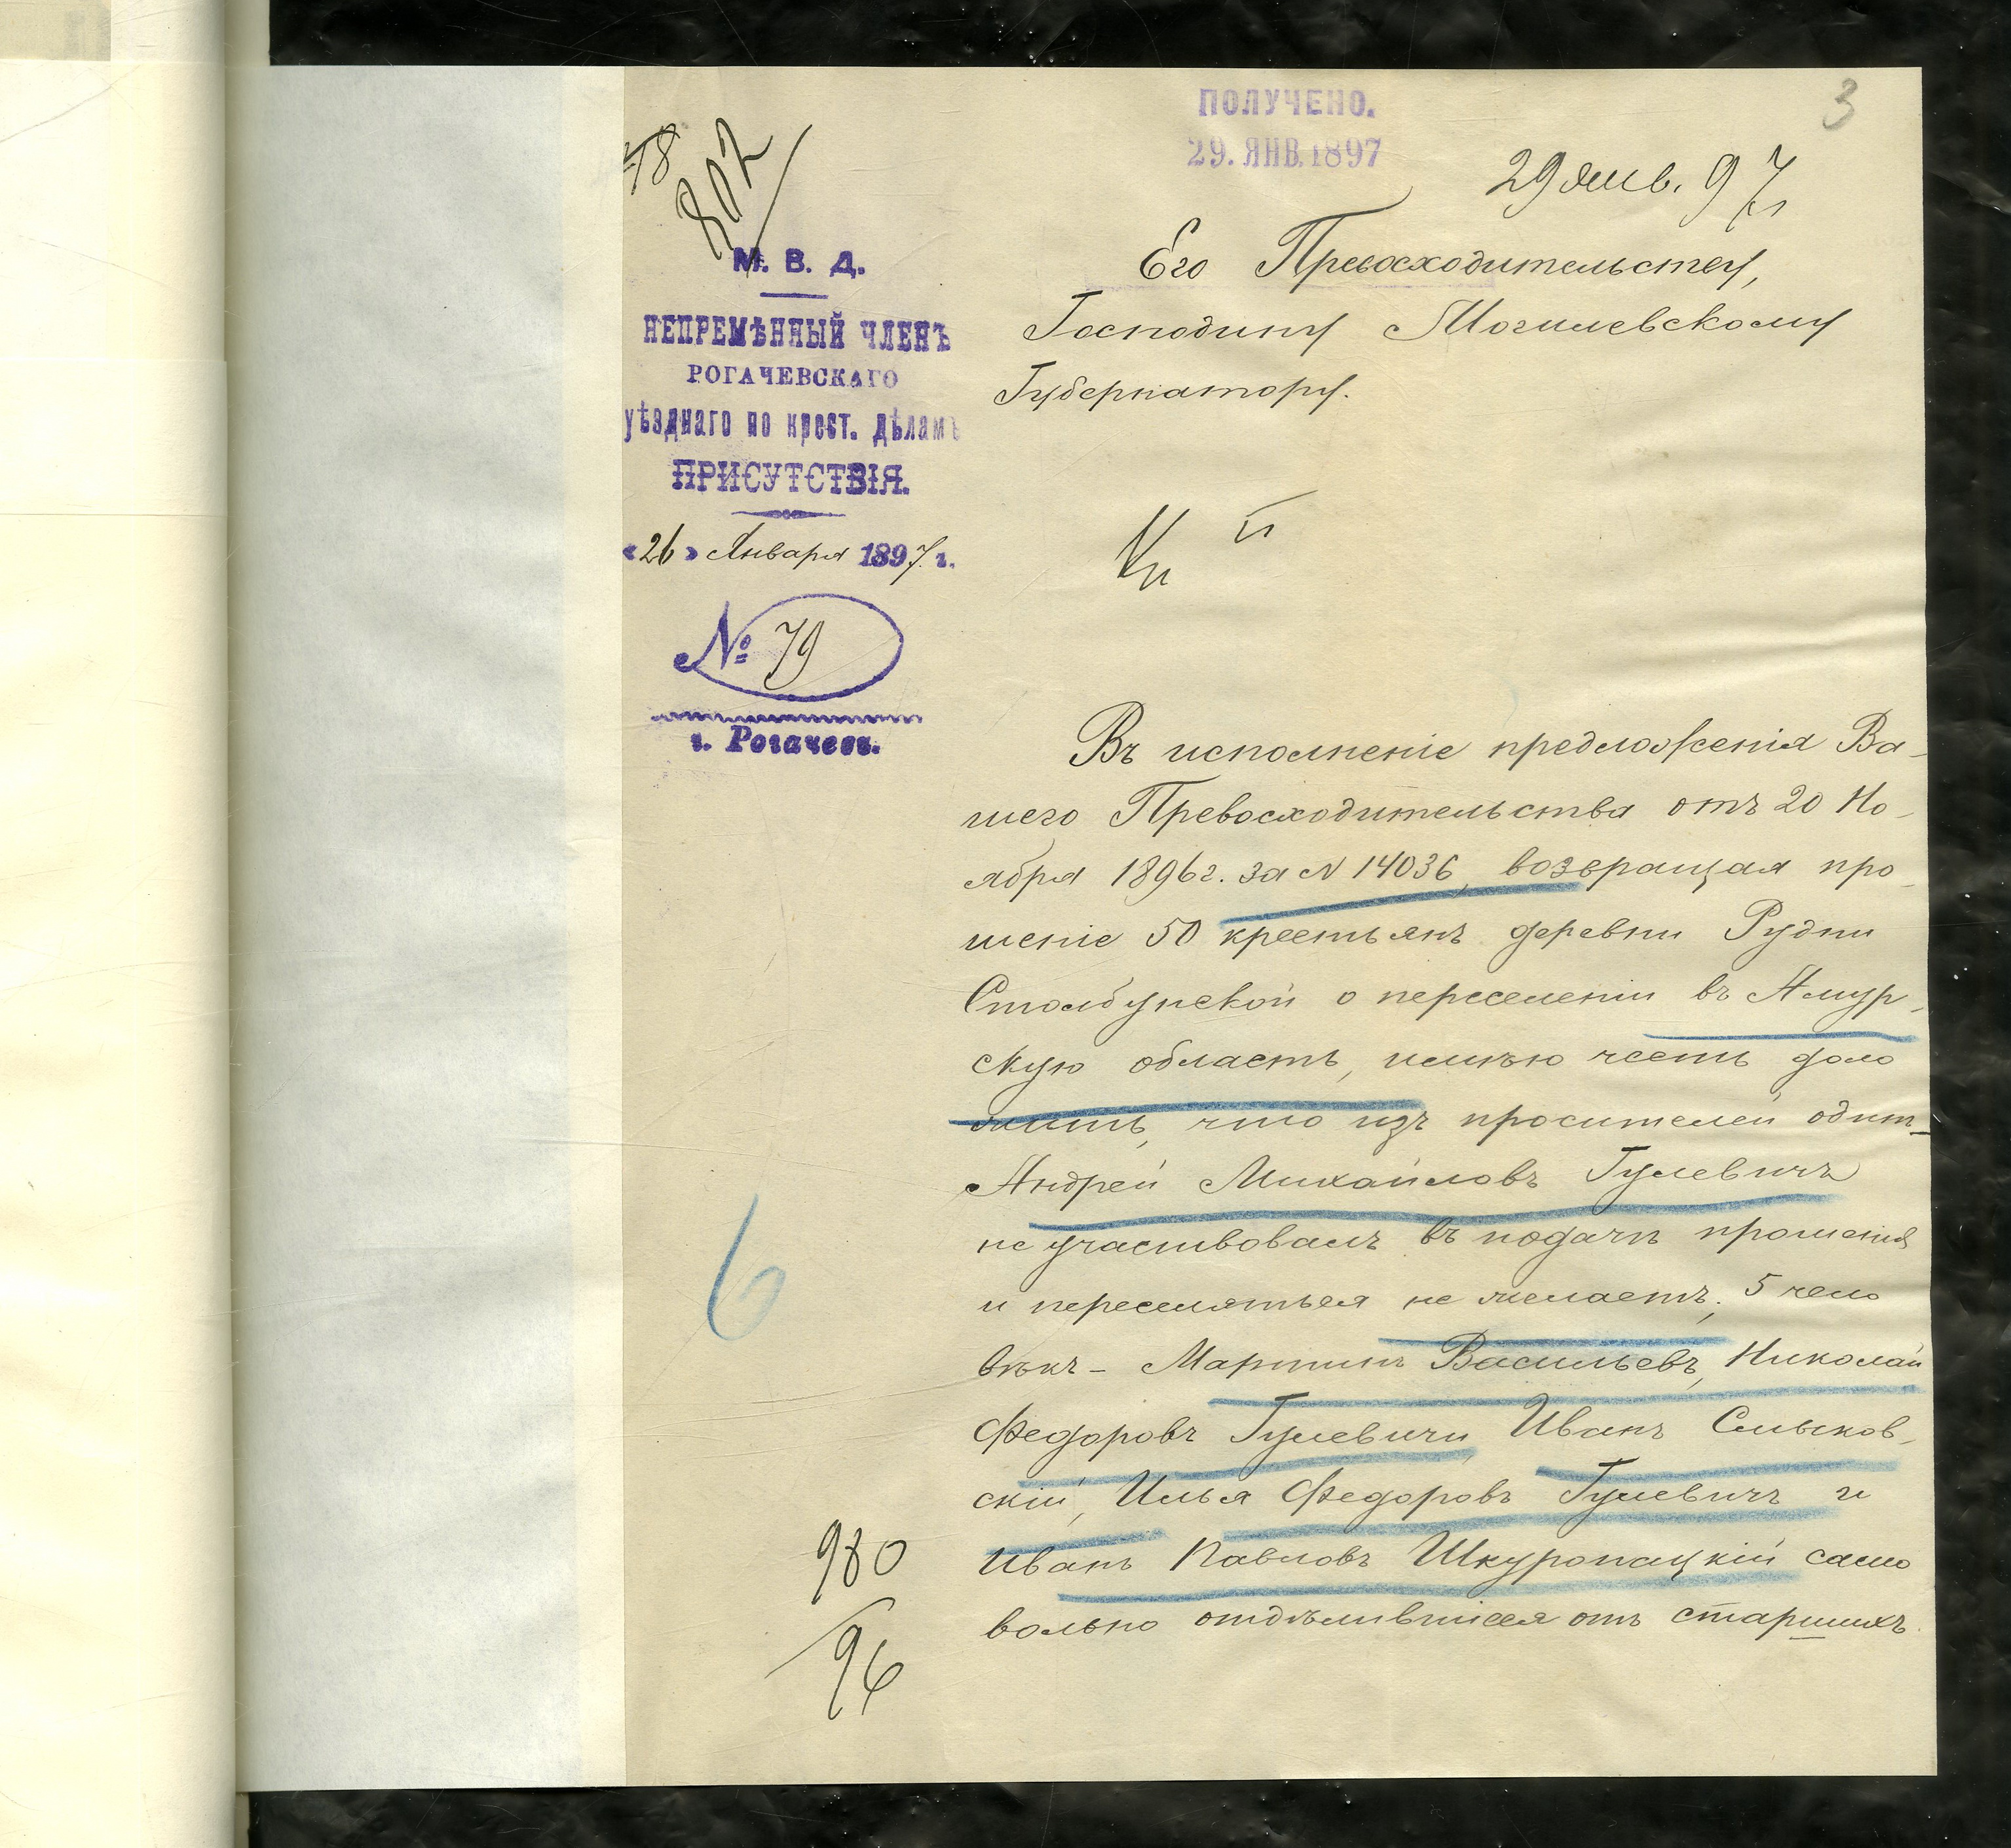 3
ПОЛУЧЕНО.
29. ЯНВ. 1897
29 янв. 97
802
М. В. Д.
НЕПРЕМѢННЫЙ ЧЛЕНЪ
РОГАЧЕВСКАГО
уѣзднаго по крест. дѣламъ
ПРИСУТСТВІЯ.
«26» Января 1897 г.
№ 79
г. Рогачевъ.
Его Превосходительству,
Господину Могилевскому
Губернатору.
Въ исполненіе предложенія Ва-
шего Превосходительства отъ 20 Но-
ября 1896 г. за N 14036, возвращая про-
шеніе 50 крестьянъ деревни Рудни
Столбунской о переселеніи въ Амур-
скую область, имѣю честь доло
жить, что изъ просителей одинъ-
Андрей Михайловъ Гулевичъ
не участвовалъ въ подачѣ прошенія
и переселяться не желаетъ; 5 чело
вѣкъ - Мартинъ Васильевъ, Николай
Федоровъ Гулевичи, Иванъ Смыков-
скій, Илья Федоровъ Гулевичъ и
Иванъ Павловъ Шкуропацкій само
вольно отдѣлившіеся отъ старшихъ
6
980
96